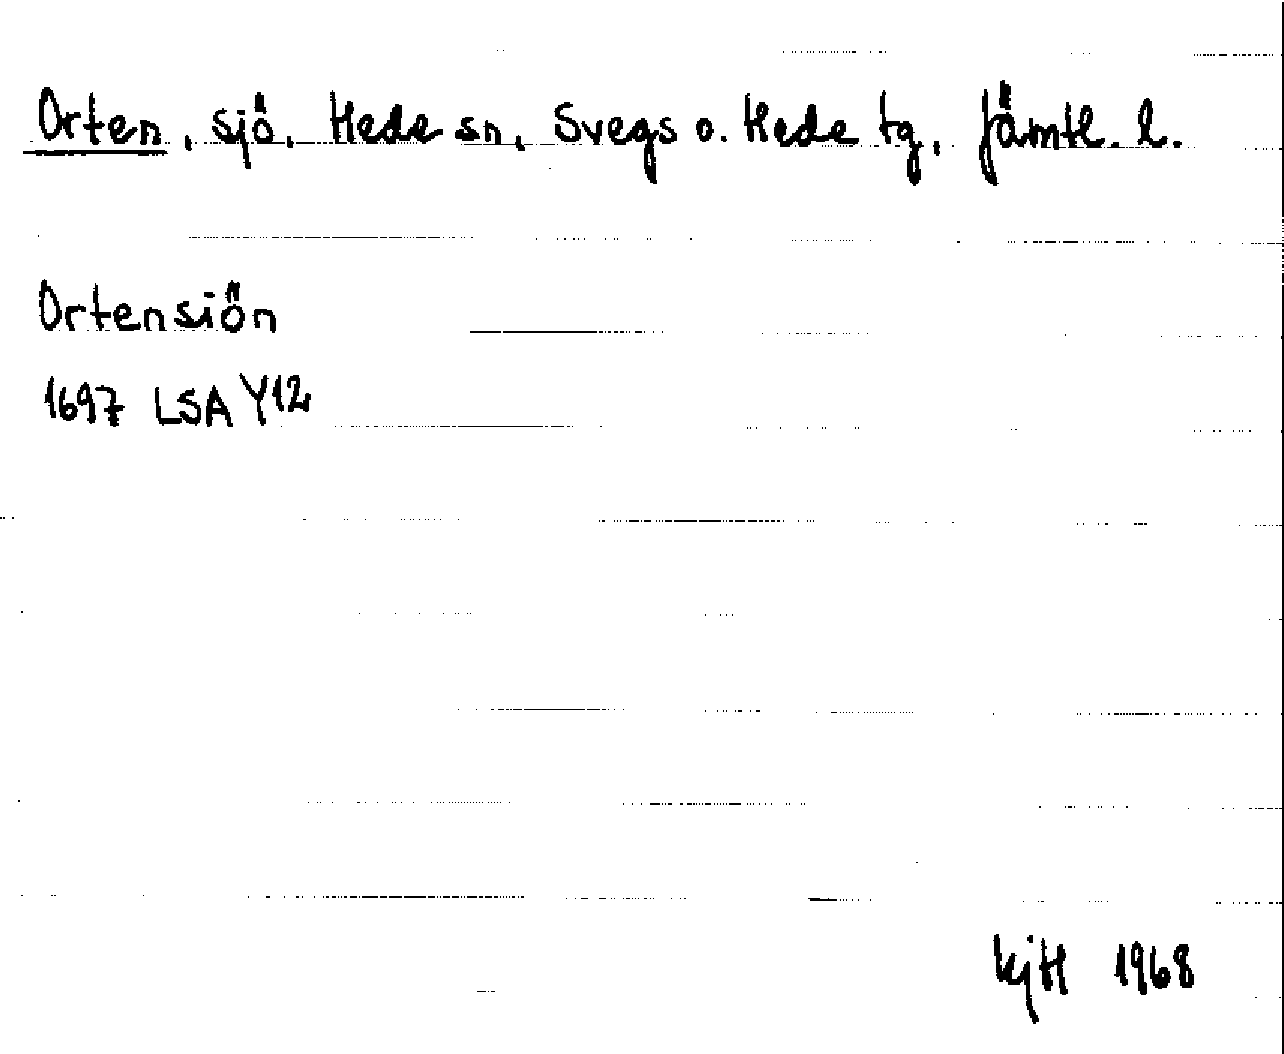 Orten, sjö. Hede sn, Svegs o. Hede tg, Jämtl. l.
Ortensiön
1697 LSA Y12
KjH 1968